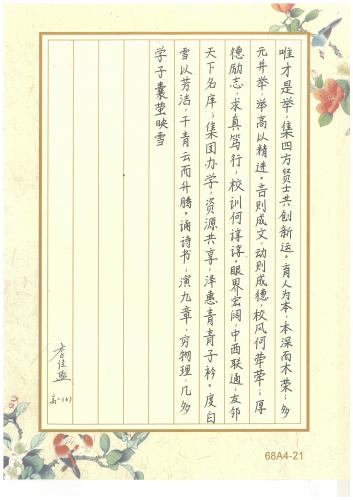 唯才是举,集四方贤士共创新运。育人为本,本深而木荣;多
元并举,举高以精进。言则成文,动则成德,校风何荦荦;厚
德励志,求真笃行,校训何谆谆。眼界宏阔,中西联通,友邻
天下名庠;集团办学,资源共享,泽惠青青子衿。度白
雪以芳洁,干青云而升腾。诵诗书,演九章,穷物理,几多
学子囊萤映雪
李佳盈
高一(6)
68A4-21